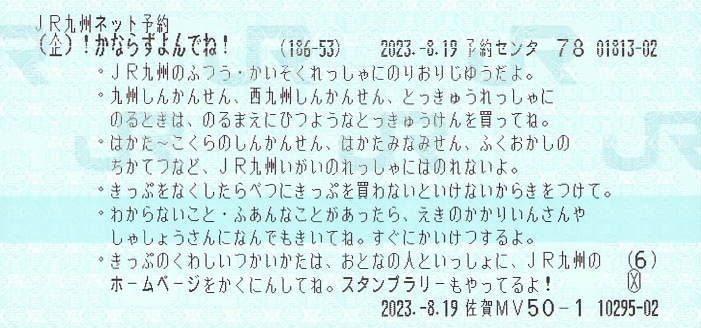 JR九州ネット予約
(企)!かならずよんでね! (186-53) 2023.-8.19 予約センタ 78 01813-02
・JR九州のふつう・かいそくれっしゃにのりおりじゆうだよ。
・九州しんかんせん、西九州しんかんせん、とっきゅうれっしゃに
のるときは、のるまえにひつようなとっきゅうけんを買ってね。
・はかた～こくらのしんかんせん、はかたみなみせん、ふくおかしの
ちかてつなど、JR九州いがいのれっしゃにはのれないよ。
・きっぷをなくしたらべつにきっぷを買わないといけないからきをつけて。
・わからないこと・ふあんなことがあったら、えきのかかりいんさんや
しゃしょうさんになんでもきいてね。すぐにかいけつするよ。
・きっぷのくわしいつかいかたは、おとなの人といっしょに、JR九州の (6)
ホームページをかくにんしてね。スタンプラリーもやってるよ! (X)
2023.-8.19 佐賀MV50-1 10295-02